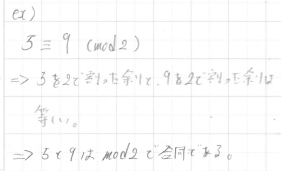 ex)
5 ≡ 9 (mod 2)
=> 5を2で割った余りと、9を2で割った余りは
等しい。
=> 5と9は mod2 で合同である。